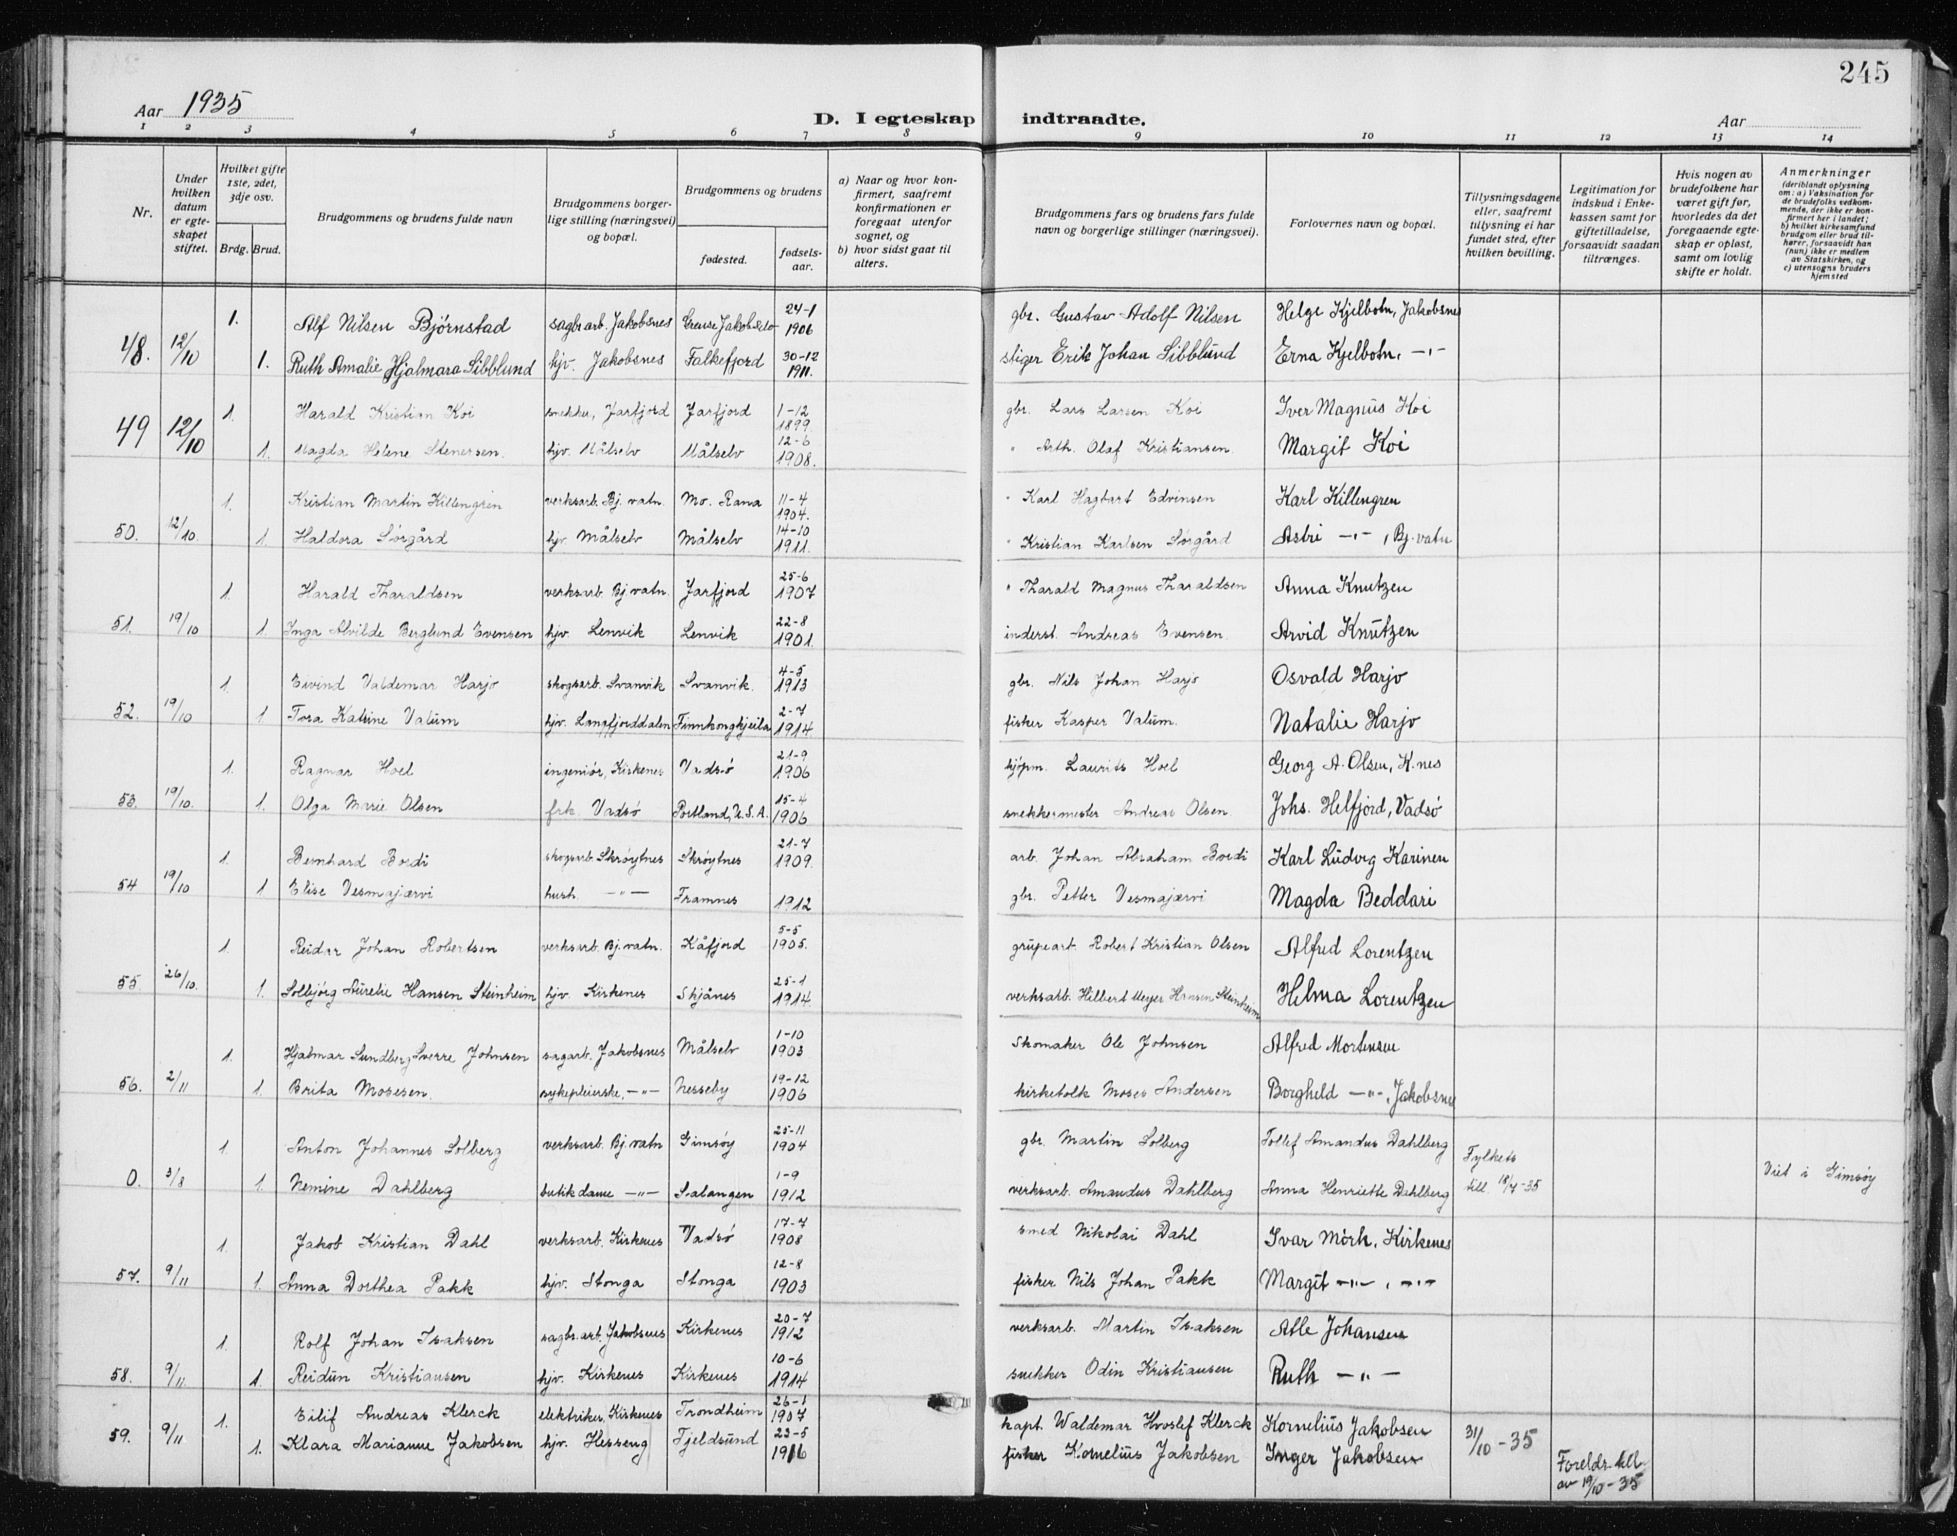 245
Aar 1935
D. I egteskap indtraadte.
Aar
1 2 3 4 5 6 7 8 9 10 11 12 13 14
Nr.
Under hvilken datum er egteskapet stiftet.
Hvilket gifte 1ste, 2det, 3dje osv.
Brdg. Brud.
Brudgommens og brudens fulde navn
Brudgommens borgerlige stilling (næringsvei) og bopæl.
Brudgommens og brudens
fødested.
fødselsaar.
a) Naar og hvor konfirmert, saafremt konfirmationen er foregaat utenfor sognet, og
b) hvor sidst gaat til alters.
Brudgommens fars og brudens fars fulde navn og borgerlige stillinger (næringsvei).
Forlovernes navn og bopæl.
Tillysningsdagene eller, saafremt tillysning ei har fundet sted, efter hvilken bevilling.
Legitimation for indskud i Enkekassen samt for giftetilladelse, forsaavidt saadan tiltrænges.
Hvis nogen av brudefolkene har været gift før, hvorledes da det foregaaende egteskap er opløst, samt om lovlig skifte er holdt.
Anmerkninger (deriblandt oplysning om: a) Vaksination for de brudefolks vedkommende, der ikke er konfirmert her i landet; b) hvilket kirkesamfund brudgom eller brud tilhører, forsaavidt han (hun) ikke er medlem av Statskirken, og c) utensogns bruders hjemsted
1. Alf Nilsen Bjørnstad sagbr.arb. Jakobsnes 24-1 1906 gbr. Gustav Adolf Nilsen Helge Kjelbotn, Jakobsnes
48. 12/10 1. Ruth Amalie Hjalmara Sibblund hjv. Jakobsnes Falkefjord 30-12 1911. stiger Erik Johan Sibblund Erna Kjelbotn, -"-
1. Harald Kristian Koi snekker, Jarfjord Jarfjord 1-12 1899. gbr. Lars Larsen Koi Iver Magnus Koi
49 12/10 1. Magda Helene Stenersen. hjv. Målselv Målselv 12-6 1908. " Arth. Olaf Kristiansen. Margit Koi
1. Kristian Martin Killengrin verksarb. Bj.vatn. Mo. Rana 11-4 1904. " Karl Hagbart Edvinsen Karl Killengren
50. 12/10. 1. Haldora Sørgård hjv. Målselv Målselv 14-10 1911. " Kristian Karlsen Sørgård Astri -"-, Bj.vatn
1. Harald Tharaldsen verksarb. Bj.vatn. Jarfjord 25-6 1907 " Tharald Magnus Tharaldsen Anna Knutzen
51. 19/10 1. Inga Alvilde Berglund Evensen hjv. Lenvik Lenvik 22-8 1901. inderst. Andreas Evensen. Arvid Knutzen
1. Eivind Valdemar Harjo skogsarb. Svanvik Svanvik. 4-5 1913 gbr. Nils Johan Harjo Osvald Harjo
52. 19/10 1 Tora Katrine Valum hjv. Langfjorddalen Finnkongkjeila 2-7 1914 fisker Kasper Valum. Natalie Harjo
1. Ragnar Hoel ingeniør, Kirkenes Vadsø 21-9 1906 kjøpm. Laurits Hoel Georg A. Olsen, K.nes
53. 19/10. 1. Olga Marie Olsen frk. Vadsø Portland, U.S.A. 15-4 1906 snekkermester Andreas Olsen. Johs. Helfjord, Vadsø
1. Bernhard Bordi skogsarb. Skrøytnes Skrøytnes 21-7 1909. arb. Johan Abraham Bordi Karl Ludvig Karinen
54 19/10 1 Elise Vesmajærvi hush. -"- Framnes 1912 gbr. Petter Vesmajærvi Magda Beddari
1. Reidar Johan Robertsen verksarb. Bj.vatn. Kåfjord 5-5 1905. Robert Kristian Olsen Alfred Lorentzen
55. 26/10. 1. Solbjørg Aurelie Hansen Steinheim hjv. Kirkenes Skjånes 25-1 1914. verksarb. Hilbert Meyer Hansen Steinheim Helma Lorentzen
1. Hjalmar Sundberg Sverre Johnsen sagarb. Jakobsnes Målselv 1-10 1903 Skomaker Ole Johnsen Alfred Mortensen
56. 2/11 1. Brita Mosesen. sykepleierske. -"- Nesseby 19-12 1906 kirketolk Moses Andersen Borghild -"-, Jakobsnes
1. Anton Johannes Solberg verksarb. Bj.vatn Gimsøy 25-11 1904 gbr. Martin Solberg Tollef Amandus Dahlberg
0. 3/8 1. Nemine Dahlberg butikdame -"- Salangen 1-9 1912 verksarb. Amandus Dahlberg Anna Henriette Dahlberg Fylkets till. 18/7-35 Viet i Gimsøy
1. Jakob Kristian Dahl verksarb. Kirkenes Vadsø 17-7 1908 smed Nikolai Dahl Ivar Mørk, Kirkenes
57. 9/11 1. Anna Dorthea Pakk hjv. Stonga Stonga 12-8 1903 fisker Nils Johan Pakk Margit -"-, -"-
1. Rolf Johan Isaksen sagbr.arb. Jakobsnes Kirkenes 20-7 1912 verksarb. Martin Isaksen Atle Johansen
58. 9/11 1. Reidun Kristiansen hjv. Kirkenes Kirkenes 10-6 1914 snekker Odin Kristiansen Ruth -"-
1. Eilif Andreas Klerck elektriker, Kirkenes Trondheim 26-1 1907 kapt. Waldemar Hvoslef Klerck Kornelius Jakobsen
59. 9/11 1. Klara Marianne Jakobsen hjv. Hesseng Tjeldsund 23-5 1916 fisker Kornelius Jakobsen Inger Jakobsen 31/10-35 Foreldr. till. av 19/10-35